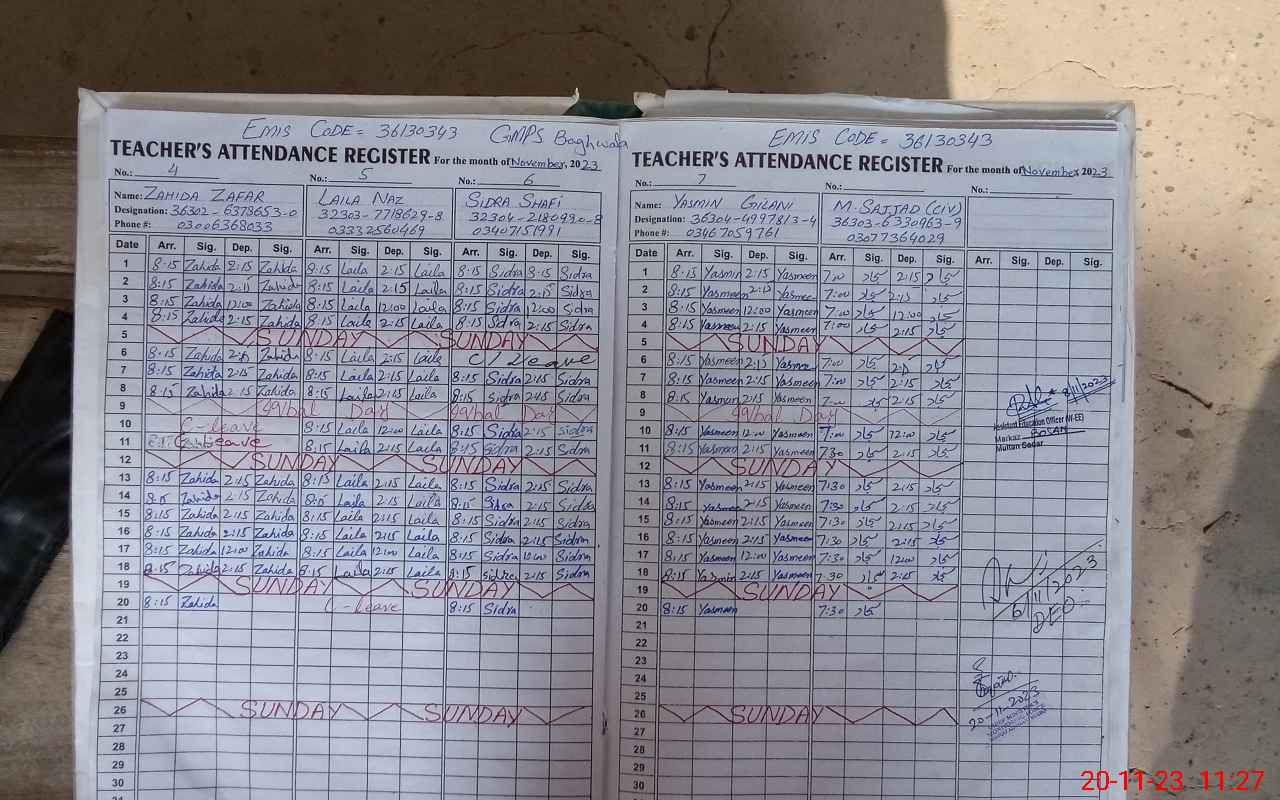 EMIS CODE = 36130343 GMPS Baghwala
TEACHER'S ATTENDANCE REGISTER For the month of November, 2023
No.: 4 No.: 5 No.: 6
Name: ZAHIDA ZAFAR LAILA NAZ SIDRA SHAFI
Designation: 36302-6378653-0 32303-7718629-8 32304-2180490-8
Phone #: 03006368033 03332560469 03407151991
Date Arr. Sig. Dep. Sig. Arr. Sig. Dep. Sig. Arr. Sig. Dep. Sig.
1 8:15 Zahida 2:15 Zahida 8:15 Laila 2:15 Laila 8:15 Sidra 8:15 Sidra
2 8:15 Zahida 2:15 Zahida 8:15 Laila 2:15 Laila 8:15 Sidra 2:15 Sidra
3 8:15 Zahida 12:00 Zahida 8:15 Laila 12:00 Laila 8:15 Sidra 12:00 Sidra
4 8:15 Zahida 2:15 Zahida 8:15 Laila 2:15 Laila 8:15 Sidra 2:15 Sidra
5 SUNDAY SUNDAY
6 8:15 Zahida 2:15 Zahida 8:15 Laila 2:15 Laila C/Leave
7 8:15 Zahida 2:15 Zahida 8:15 Laila 2:15 Laila 8:15 Sidra 2:15 Sidra
8 8:15 Zahida 2:15 Zahida 8:15 Laila 2:15 Laila 8:15 Sidra 2:15 Sidra
9 Iqbal Day Iqbal Day
10 C-leave 8:15 Laila 12:00 Laila 8:15 Sidra 2:15 Sidra
11 Leave 8:15 Laila 2:15 Laila 8:15 Sidra 2:15 Sidra
12 SUNDAY SUNDAY
13 8:15 Zahida 2:15 Zahida 8:15 Laila 2:15 Laila 8:15 Sidra 2:15 Sidra
14 8:15 Zahida 2:15 Zahida 8:15 Laila 2:15 Laila 8:15 Sidra 2:15 Sidra
15 8:15 Zahida 2:15 Zahida 8:15 Laila 2:15 Laila 8:15 Sidra 2:15 Sidra
16 8:15 Zahida 2:15 Zahida 8:15 Laila 2:15 Laila 8:15 Sidra 2:15 Sidra
17 8:15 Zahida 12:00 Zahida 8:15 Laila 12:00 Laila 8:15 Sidra 12:00 Sidra
18 8:15 Zahida 2:15 Zahida 8:15 Laila 2:15 Laila 8:15 Sidra 2:15 Sidra
19 SUNDAY SUNDAY
20 8:15 Zahida C-leave 8:15 Sidra
21
22
23
24
25
26 SUNDAY SUNDAY
27
28
29
30
EMIS CODE = 36130343
TEACHER'S ATTENDANCE REGISTER For the month of November 2023
No.: 7 No.: No.:
Name: YASMIN GILANI M. SAJJAD (CIV)
Designation: 36304-4997813-4 36303-6330963-9
Phone #: 03467059761 03077364029
Date Arr. Sig. Dep. Sig. Arr. Sig. Dep. Sig. Arr. Sig. Dep. Sig.
1 8:15 Yasmin 2:15 Yasmeen 7:00 سجاد 2:15 سجاد
2 8:15 Yasmeen 2:15 Yasmeen 7:00 سجاد 2:15 سجاد
3 8:15 Yasmeen 12:00 Yasmeen 7:00 سجاد 12:00 سجاد
4 8:15 Yasmeen 2:15 Yasmeen 7:00 سجاد 2:15 سجاد
5 SUNDAY
6 8:15 Yasmeen 2:15 Yasmeen 7:00 سجاد 2:15 سجاد
7 8:15 Yasmeen 2:15 Yasmeen 7:00 سجاد 2:15 سجاد
8 8:15 Yasmin 2:15 Yasmeen 7:00 سجاد 2:15 سجاد
9 Iqbal Day
10 8:15 Yasmeen 12:00 Yasmeen 7:00 سجاد 12:00 سجاد
11 8:15 Yasmeen 2:15 Yasmeen 7:30 سجاد 2:15 سجاد
12 SUNDAY
13 8:15 Yasmeen 2:15 Yasmeen 7:30 سجاد 2:15 سجاد
14 8:15 Yasmeen 2:15 Yasmeen 7:30 سجاد 2:15 سجاد
15 8:15 Yasmeen 2:15 Yasmeen 7:30 سجاد 2:15 سجاد
16 8:15 Yasmeen 2:15 Yasmeen 7:30 سجاد 2:15 سجاد
17 8:15 Yasmeen 12:00 Yasmeen 7:30 سجاد 12:00 سجاد
18 8:15 Yasmin 2:15 Yasmeen 7:30 سجاد 2:15 سجاد
19 SUNDAY
20 8:15 Yasmeen 7:30 سجاد
21
22
23
24
25
26 SUNDAY
27
28
29
30
8/11/2023
Assistant Education Officer (W-EE)
Markaz BOSAN
Multan Sadar
6/11/2023
DEO
20-11-2023
20-11-23 11:27